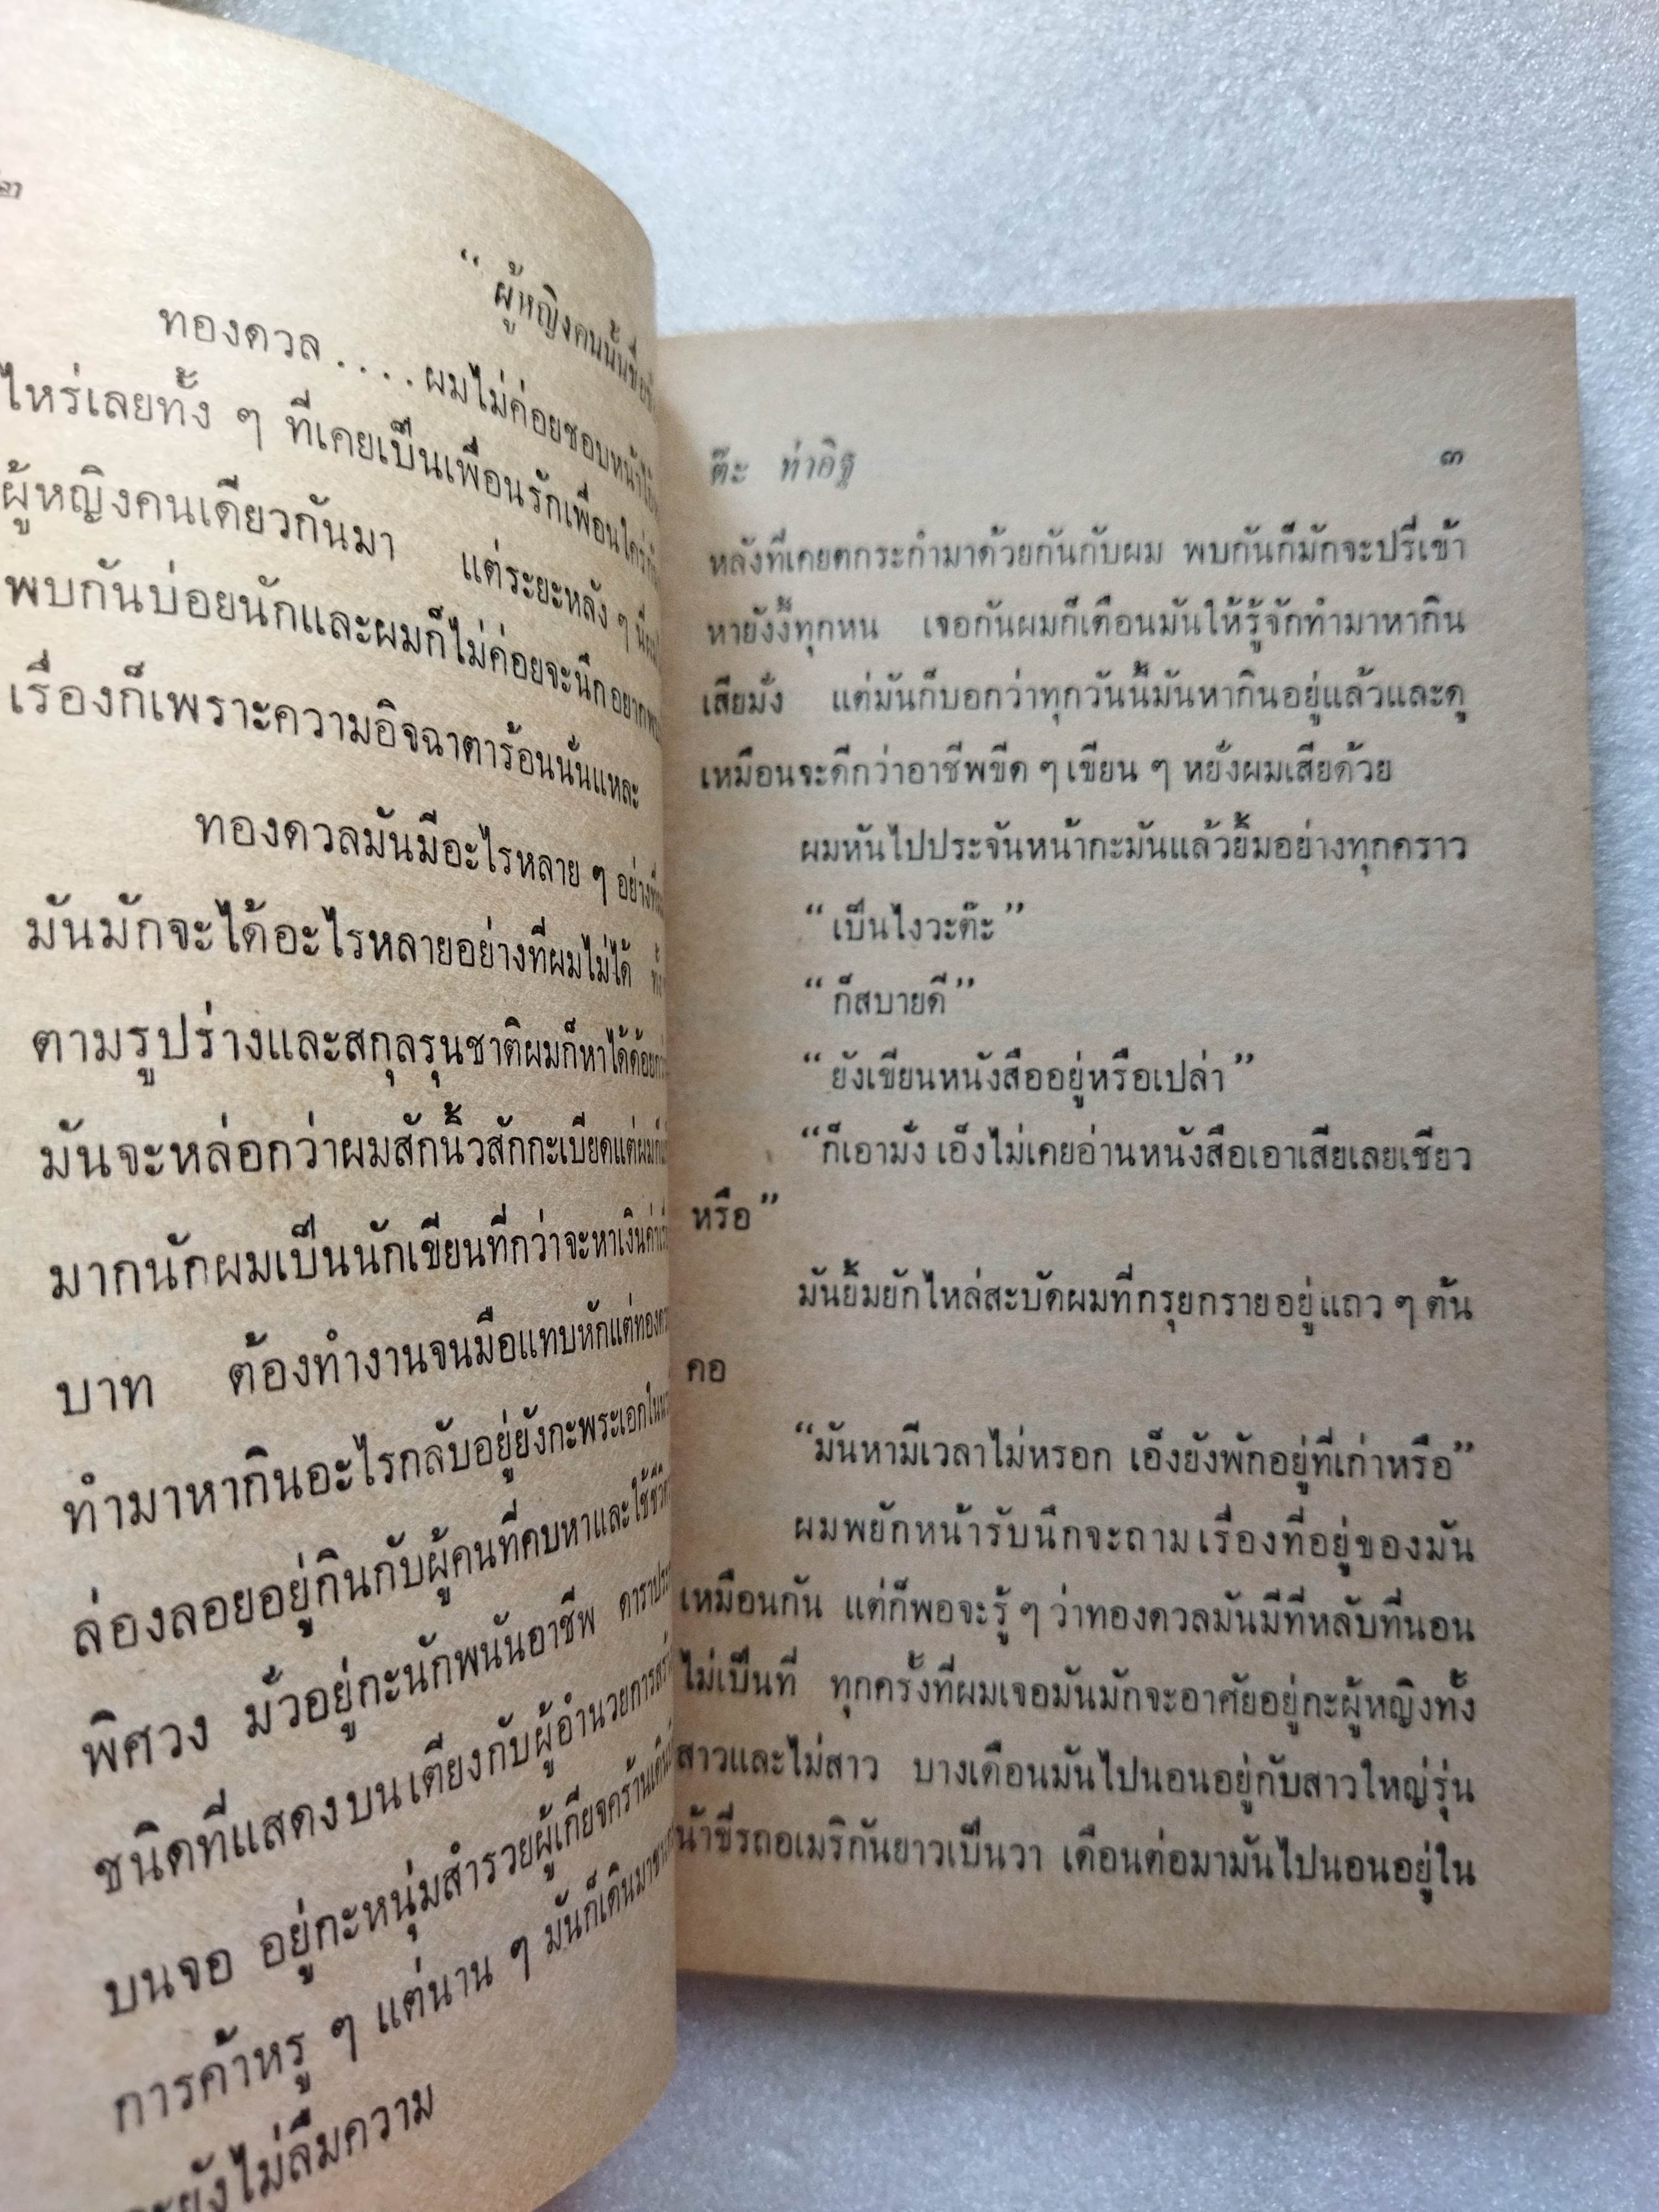 ๒
“ ผู้หญิงคนนั้นชื่อ
ทองดวล....ผมไม่ค่อยชอบหน้า
ไหร่เลยทั้ง ๆ ที่เคยเป็นเพื่อนรักเพื่อนใคร่
ผู้หญิงคนเดียวกันมา แต่ระยะหลัง ๆ นี่
พบกันบ่อยนักและผมก็ไม่ค่อยจะนึกอยากพบ
เรื่องก็เพราะความอิจฉาตาร้อนนั่นแหละ
ทองดวลมันมีอะไรหลาย ๆ อย่างที่
มันมักจะได้อะไรหลายอย่างที่ผมไม่ได้
ตามรูปร่างและสกุลรุนชาติผมก็หาได้ด้อยกว่า
มันจะหล่อกว่าผมสักนิ้วสักกะเบียดแต่ผม
มากนักผมเป็นนักเขียนที่กว่าจะหาเงินค่า
บาท ต้องทำงานจนมือแทบหักแต่ทองดวล
ทำมาหากินอะไรกลับอยู่ยังกะพระเอกใน
ล่องลอยอยู่กินกับผู้คนที่คบหาและใช้ชีวิต
พิศวง มั่วอยู่กะนักพนันอาชีพ ดาราประ
ชนิดที่แสดงบนเตียงกับผู้อำนวยการสร้าง
บนจอ อยู่กะหนุ่มสำรวยผู้เกียจคร้านเดิน
การค้าหรู ๆ แต่นาน ๆ มันก็เดินมา
ยังไม่ลืมความ
ต๊ะ ท่าอิฐ ๓
หลังที่เคยตกระกำมาด้วยกันกับผม พบกันก็มักจะปรี่เข้า
หายังงี้ทุกหน เจอกันผมก็เตือนมันให้รู้จักทำมาหากิน
เสียมั่ง แต่มันก็บอกว่าทุกวันนี้มันหากินอยู่แล้วและดุ
เหมือนจะดีกว่าอาชีพขีด ๆ เขียน ๆ หยั่งผมเสียด้วย
ผมหันไปประจันหน้ากะมันแล้วยิ้มอย่างทุกคราว
“เป็นไงวะต๊ะ”
“ ก็สบายดี”
“ ยังเขียนหนังสืออยู่หรือเปล่า”
“ก็เอามั่ง เอ็งไม่เคยอ่านหนังสือเอาเสียเลยเชียว
หรือ”
มันยิ้มยักไหล่สะบัดผมที่กรุยกรายอยู่แถว ๆ ต้น
คอ
“มันหามีเวลาไม่หรอก เอ็งยังพักอยู่ที่เก่าหรือ”
ผมพยักหน้ารับนึกจะถามเรื่องที่อยู่ของมัน
เหมือนกัน แต่ก็พอจะรู้ ๆ ว่าทองดวลมันมีที่หลับที่นอน
ไม่เป็นที่ ทุกครั้งที่ผมเจอมันมักจะอาศัยอยู่กะผู้หญิงทั้ง
สาวและไม่สาว บางเดือนมันไปนอนอยู่กับสาวใหญ่รุ่น
น้าขี่รถอเมริกันยาวเป็นวา เดือนต่อมามันไปนอนอยู่ใน